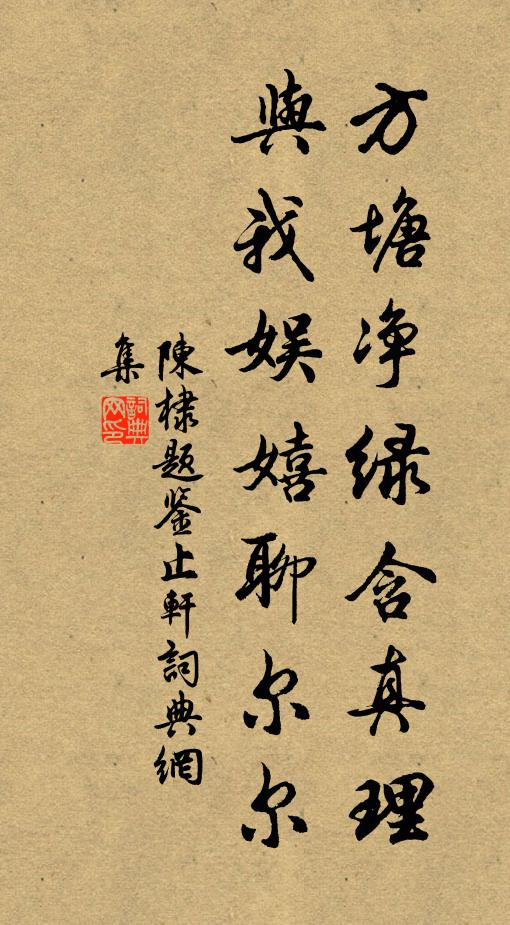 方塘净绿含真理
與我娱嬉聊尔尔
陳棣題鉴止軒詞典網
集
詞典
网印